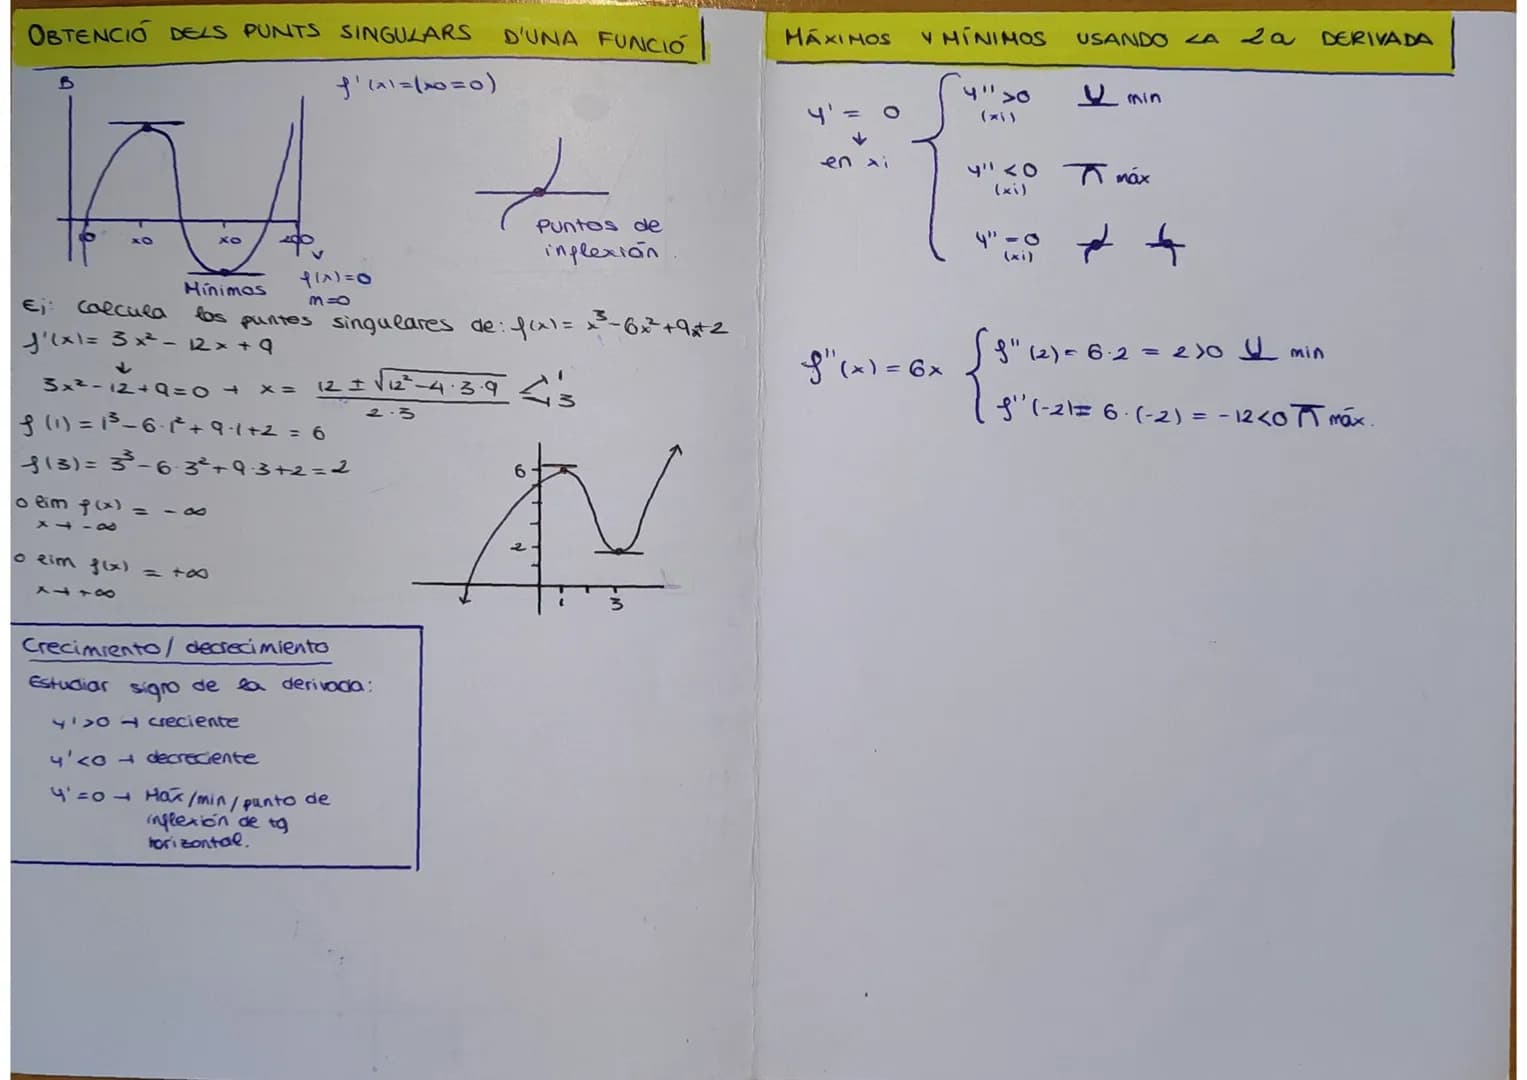 OBTENCIÓ DELS PUNTS SINGULARS D'UNA FUNCIÓ
B
f'(x)=(x0=0)
x0 x0 200
Puntos de
inflexión.
Mínimos
f(x)=0
m=0
Ej: calcula los puntos singulares de: f(x)= x³-6x²+9x+2
f'(x)= 3x² - 12x + 9
↓
3x²-12+9=0 → x = (12 ± √(12²-4·3·9))/(2·3) < 1 3
f(1) = 1³-6·1²+9·1+2 = 6
f(3) = 3³-6·3²+9·3+2=2
o lim f(x) = -∞
x→-∞
o lim f(x) = +∞
x→+∞
6
2
1 3
Crecimiento/ decrecimiento
Estudiar signo de la derivada:
y'>0 → creciente
y'<0 → decreciente
y'=0 → Máx/min/punto de
inflexión de tg
horizontal.
MÁXIMOS Y MÍNIMOS USANDO LA 2a DERIVADA
y' = 0
↓
en xi
y''>0 min
(xi)
y''<0 máx
(xi)
y''=0
(xi)
f''(x) = 6x
f''(2)= 6·2 = 2>0 min
f''(-2)= 6·(-2) = -12<0 máx.